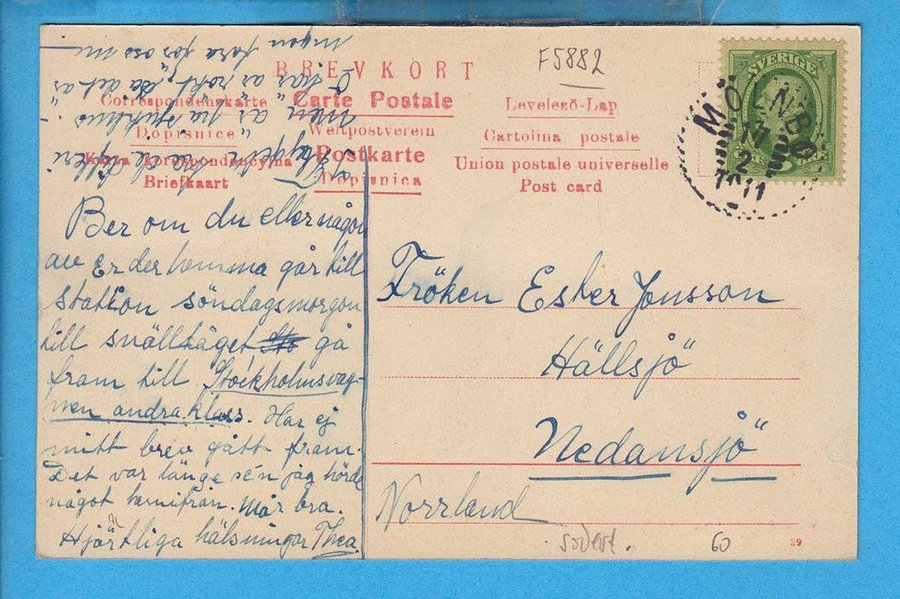 F5882
BREVKORT
Correspondenskarte Carte Postale Levelező-Lap
Dopisnice Weltpostverein Cartolina postale
Karta korespondencyjna Postkarte Union postale universelle
Briefkaart Dopisnica Post card
SVERIGE
17
2
1911
Ber om du eller någon
av Er der hemma går till
station söndagsmorgon
till snälltåget gå
fram till Stockholmsvag-
nen andra klass. Har ej
mitt brev gått fram.
Det var länge sén jag hörde
något hemifrån. Mår bra.
Hjärtliga hälsningar Thea.
Fröken Ester Jonsson
Hällsjö
Nedansjö
Norrland
60
39